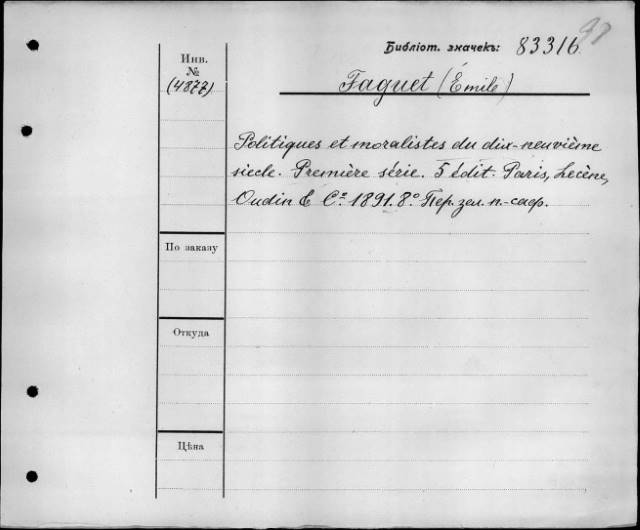 Библіот. значекъ: 83316
97
Инв.
№
(4877)
Faguet (Émile)
Politiques et moralistes du dix-neuvième
siècle. Première série. 5 édit. Paris, Lecène,
Oudin & Cᵉ. 1891. 8º Пер. зел. п.-саф.
По заказу
Откуда
Цѣна